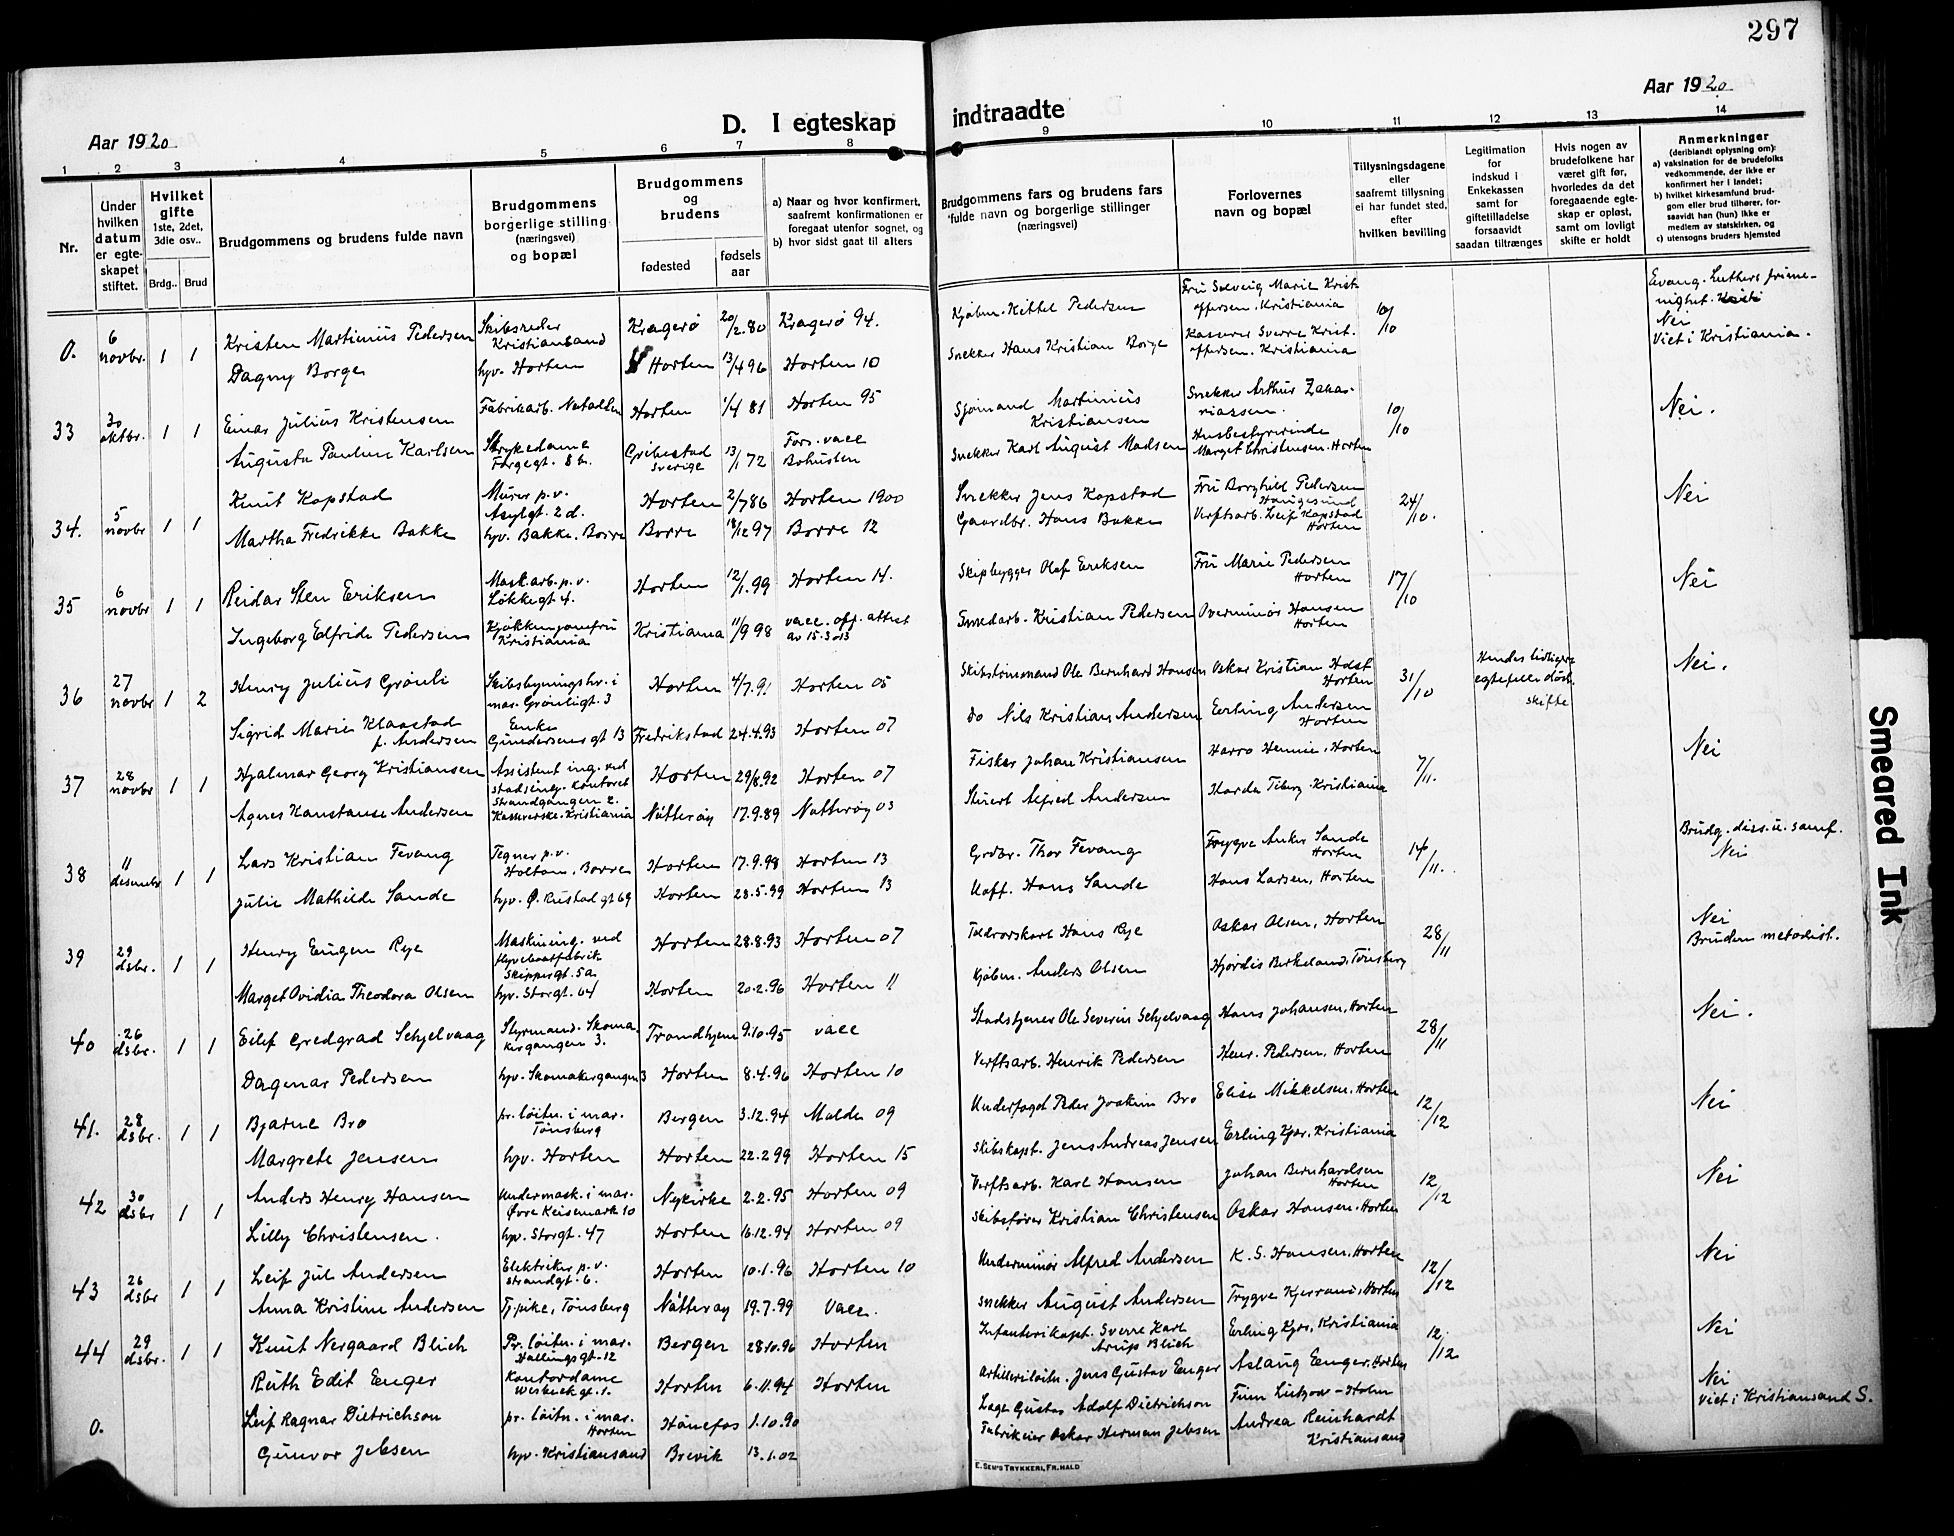 297
Aar 1920
D. I egteskap indtraadte
Aar 1920
1 2 3 4 5 6 7 8 9 10 11 12 13 14
Nr.
Under hvilken datum er egteskapet stiftet.
Hvilket gifte
1ste, 2det, 3die osv..
Brdg.. Brud
Brudgommens og brudens fulde navn
Brudgommens borgerlige stilling (næringsvei) og bopæl
Brudgommens og brudens
fødested
fødsels aar
a) Naar og hvor konfirmert, saafremt konfirmationen er foregaat utenfor sognet, og
b) hvor sidst gaat til alters
Brudgommens fars og brudens fars fulde navn og borgerlige stillinger (næringsvei)
Forlovernes navn og bopæl
Tillysningsdagene eller saafremt tillysning ei har fundet sted, efter hvilken bevilling
Legitimation for indskud i Enkekassen samt for giftetilladelse forsaavidt saadan tiltrænges
Hvis nogen av brudefolkene har været gift før, hvorledes da det foregaaende egteskap er opløst, samt om lovligt skifte er holdt
Anmerkninger
(deriblandt oplysning om):
a) vaksination for de brudefolks vedkommende, der ikke er konfirmert her i landet;
b) hvilket kirkesamfund brudgom eller brud tilhører, forsaavidt han (hun) ikke er medlem av statskirken, og
c) utensogns bruders hjemsted
0. 6 novbr. 1 1 Kristen Martinius Pedersen Skibsreder Kristiansand Kragerö 20/2.80 Kragerö 94. Kjøbm. Kittel Pedersen Fru Solveig Marie Kristoffersen, Kristiania 10/10 Evang. Luthers frimenighet. Nei
Dagny Borge hpv. Horten Horten 13/4 96 Horten 10 Snekker Hans Kristian Borge Kasserer Sverre Kristoffersen. Kristiania Viet i Kristiania.
33 30 oktbr. 1 1 Einar Julius Kristensen Fabrikarb. Horten 1/4 81 Horten 95 Sjömand Martinius Kristiansen Snekker Arthur Zakariassen. 10/10 Nei.
Augusta Pauline Karlsen Strykedame Fargegt. 8 b. Grebestad Sverige 13/1 72 Fors. vacc Bohuslen Snekker Karl August Madsen Husbestyrerinde Marget Christensen. Horten
34. 5 novbr 1 1 Knut Kopstad Murer p.v. Asylgt. 2 d. Horten 2/7 86 Horten 1900 Snekker Jens Kopstad Fru Borghild Pedersen Haugesund 24/10. Nei
Martha Fredrikke Bakke hpv. Bakke. Borre Borre 18/12 97 Borre 12 Gaardbr. Hans Bakke Verftsarb. Leif Kopstad Horten
35 6 novbr 1 1 Reidar Sten Eriksen Maskarb. p.v. Løkkegt 4. Horten 12/1.99 Horten 14. Skipbygger Olaf Eriksen Fru Marie Pedersen Horten 17/10 Nei
Ingeborg Edfride Pedersen Kjøkkenjomfru Kristiania Kristiania 11/9 98 vacc. off. attest av 15.3.13 Smedarb. Kristian Pedersen Overminör Hansen Horten
36 27 novbr 1 2 Henry Julius Grönli Skibsbygningskv. i mar. Grönligt. 3 Horten 4/7.91 Horten 05 Skibstömmand Ole Bernhard Hansen Oskar Kristian Holst Horten 31/10 Hendes tidligere egtefelle död. skifte Nei.
Sigrid Marie Klaastad f. Andersen Enke Gundersens gt 13 Fredrikstad 24.4.93 Horten 07 do Nils Kristian Andersen Erling Andersen Horten
37 28 novbr 1 1 Hjalmar Georg Kristiansen Assistent ing. ved stadsing. Kontoret Strandgangen 2. Horten 29/8.92 Horten 07 Fisker Johan Kristiansen Harro Hennie, Horten 7/11. Nei
Agnes Konstanse Andersen Kassererske. Kristiania Nötteröy 17.9.89 Nötteröy 03 Stuert Alfred Andersen Harda Tiberg. Kristiania
38 11 desembr 1 1 Lars Kristian Fevang Tegner p.v. Holtan, Borre Horten 17.9.98 Horten 13 Grdbr. Thor Fevang Trygve Anker Sande Horten 14/11. Brudg. diss. u. samf. Nei
Julie Mathilde Sande hpv. Ø. Rustad gt 69 Horten 28.5.99 Horten 13 Uoff. Hans Sande Hans Larsen, Horten
39 29 dsbr. 1 1 Henry Eugen Rye Maskining. ved flyvebaatfabrik Skippergt. 5a. Horten 28.8.93 Horten 07 Toldrorskarl Hans Rye Oskar Olsen, Horten 28/11 Nei
Marget Ovidia Theodora Olsen hpv. Storgt. 64 Horten 20.2.96 Horten 11 Kjøbm. Anders Olsen Hjördis Birkeland, Tönsberg Bruden metodist.
40 26 dsbr. 1 1 Eilif Gredgrad Schjelvaag Styrmand. Skomakergangen 3. Trondhjem 9.10.95 vacc Stadstjener Ole Severin Schjelvaag Hans Johansen, Horten 28/11 Nei.
Dagmar Pedersen hpv. Skomakergangen 3 Horten 8.4.96 Horten 10 Verftsarb. Henrik Pedersen Henr. Pedersen, Horten
41. 28 dsbr. 1 1 Bjarne Bro pr. löitn. i mar. Tönsberg Bergen 3.12.94 Molde 09 Underfogd Peder Joakim Bro Elise Mikkelsen, Horten 12/12 Nei
Margrete Jensen hpv. Horten Horten 22.2.99 Horten 15 Skibskapt. Jens Andreas Jensen Erling Kjær, Kristiania
42 30 dsbr 1 1 Anders Henry Hansen Undermask. i mar. Øvre Keisemark 10 Nykirke 2.2.95 Horten 09 Verftsarb. Karl Hansen Johan Bernhardsen Horten 12/12 Nei
Lilly Christensen. hpv. Storgt. 47 Horten 16.12.94 Horten 09 Skibsfører Kristian Christensen Oskar Hansen. Horten
43 26 dsbr 1 1 Leif Jul Andersen Elektriker p.v. Strandgt. 6. Horten 10.1.96 Horten 10 Underminör Alfred Andersen K. S. Hansen, Horten 12/12 Nei
Anna Kristine Andersen Tj.pike, Tönsberg Nötteröy 19.7.99 Vacc. Snekker August Andersen Trygve Kjerrand, Horten
44 29 dsbr. 1 1 Knut Nergaard Blich Pr. löitn. i mar. Hallingsgt. 12 Bergen 28.10.96 Horten Infanterikapt. Sverre Karl Arup Blich Erling Kjær, Kristiania 12/12 Nei
Ruth Edit Enger Kontordame Horten 6.11.94 Horten Artilleriløitn. Jens Gustav Enger Aslaug Enger. Horten
0. Leif Ragnar Dietrichson pr. löitn. i mar. Horten Hönefos 1.10.90 Læge Gustav Adolf Dietrichson Finn Lützow-Holm Nei Viet i Kristiansand S.
Gunvor Jebsen hpv. Kristiansand Brevik 13.1.02 Fabrikeier Oskar Herman Jebsen Andrea Reinhardt Kristiansand
E. SEM'S TRYKKERI, FR.HALD
Smeared Ink